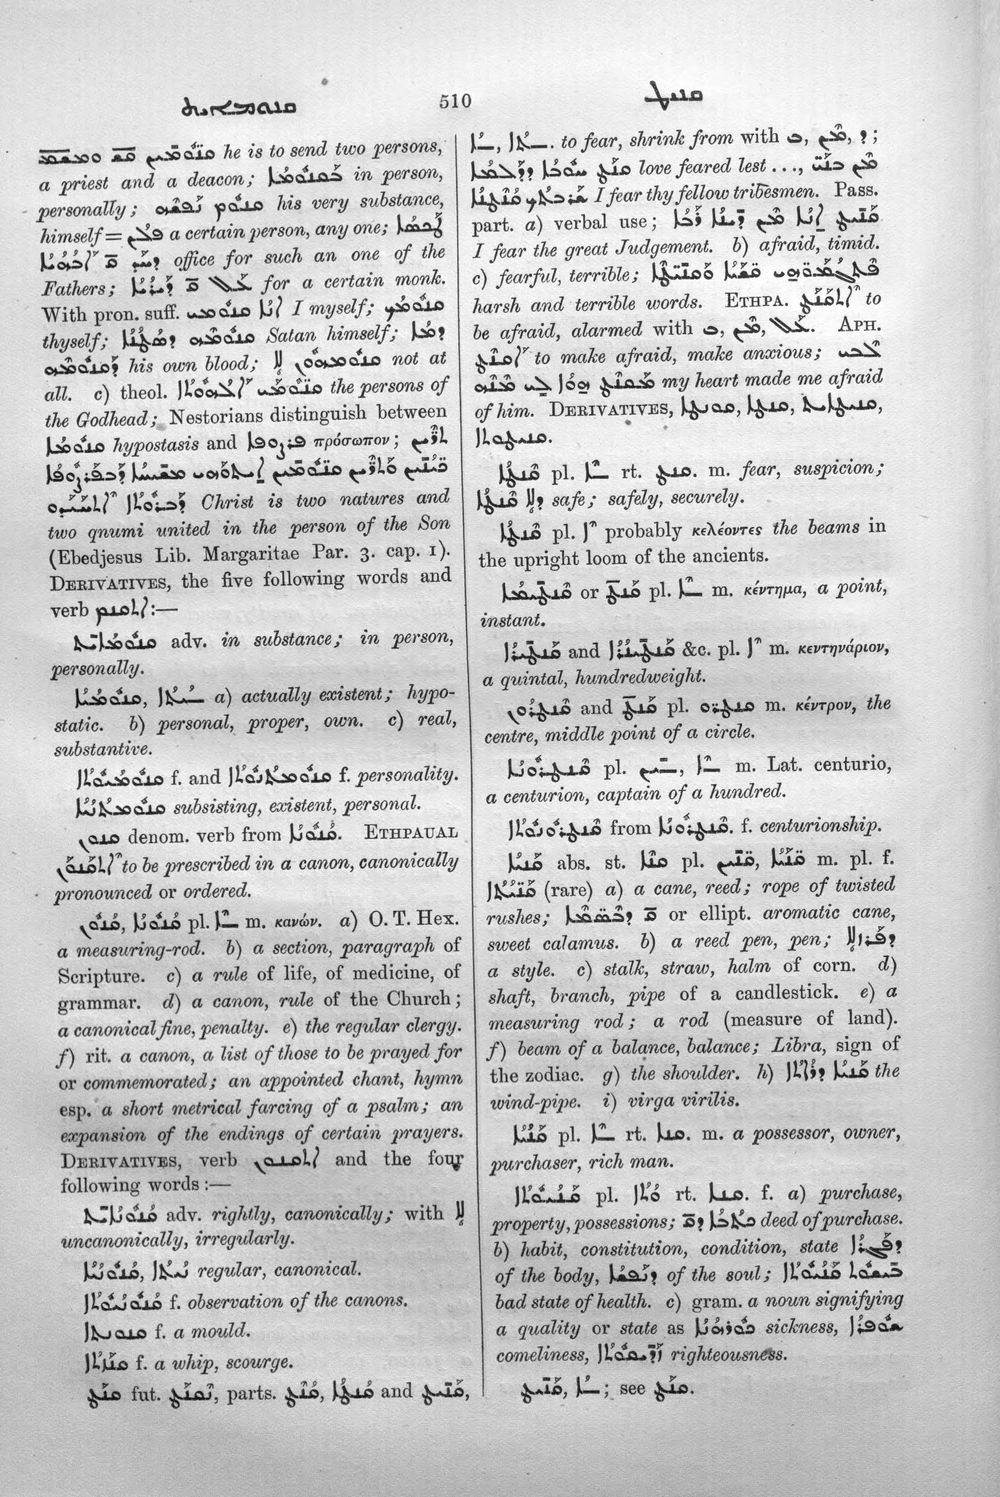 ܩܢܘܡܐܝܬ
510
ܩܢܛ
he is to send two persons,
a priest and a deacon; ܒܩܢܘܡܐ in person,
personally; ܩܢܘܡ ܢܦܫܗ his very substance,
himself = ܦܠܢ a certain person, any one;
office for such an one of the
Fathers; for a certain monk.
With pron. suff. ܐܢܐ ܩܢܘܡܝ I myself; ܩܢܘܡܟ
thyself; ܩܢܘܡܗ ܕܣܛܢܐ Satan himself; ܕܡܐ
ܕܩܢܘܡܗ his own blood; ܠܐ ܩܢܘܡܗܘܢ not at
all. c) theol. ܩܢܘܡܝ ܐܠܗܘܬܐ the persons of
the Godhead; Nestorians distinguish between
ܩܢܘܡܐ hypostasis and ܦܪܨܘܦܐ πρόσωπον; ܬܪܝܢ
ܟܝܢܝܢ ܘܬܪܝܢ ܩܢܘܡܝܢ ܐܝܬܘܗܝ ܡܫܝܚܐ ܕܒܦܪܨܘܦܐ
ܕܒܪܘܬܐ Christ is two natures and
two qnumi united in the person of the Son
(Ebedjesus Lib. Margaritae Par. 3. cap. 1).
DERIVATIVES, the five following words and
verb ܐܬܩܢܡ:—
ܩܢܘܡܐܝܬ adv. in substance; in person,
personally.
ܩܢܘܡܝܐ, ܝܬܐ a) actually existent; hypo-
static. b) personal, proper, own. c) real,
substantive.
ܩܢܘܡܝܘܬܐ f. and ܩܢܘܡܬܢܘܬܐ f. personality.
ܩܢܘܡܬܢܝܐ subsisting, existent, personal.
ܩܢܘܢ denom. verb from ܩܢܘܢܐ. ETHPAUAL
ܐܬܩܢܘܢ to be prescribed in a canon, canonically
pronounced or ordered.
ܩܢܘܢ, ܩܢܘܢܐ pl. ܐ m. κανών. a) O. T. Hex.
a measuring-rod. b) a section, paragraph of
Scripture. c) a rule of life, of medicine, of
grammar. d) a canon, rule of the Church;
a canonical fine, penalty. e) the regular clergy.
f) rit. a canon, a list of those to be prayed for
or commemorated; an appointed chant, hymn
esp. a short metrical farcing of a psalm; an
expansion of the endings of certain prayers.
DERIVATIVES, verb ܐܬܩܢܘܢ and the four
following words:—
ܩܢܘܢܐܝܬ adv. rightly, canonically; with ܠܐ
uncanonically, irregularly.
ܩܢܘܢܝܐ, ܢܝܬܐ regular, canonical.
ܩܢܘܢܝܘܬܐ f. observation of the canons.
f. a mould.
f. a whip, scourge.
ܩܢܛ fut. ܢܩܢܛ, parts. ܩܢܛ, ܩܢܛܐ and ܩܢܝܛ,
ܐ, ܬܐ. to fear, shrink from with ܒ, ܡܢ, ܕ;
ܩܢܛ ܚܘܒܐ love feared lest ...,
I fear thy fellow tribesmen. Pass.
part. a) verbal use; ܩܢܝܛ ܐܢܐ ܡܢ ܕܝܢܐ ܪܒܐ
I fear the great Judgement. b) afraid, timid.
c) fearful, terrible;
harsh and terrible words. ETHPA. ܐܬܩܢܛ to
be afraid, alarmed with ܒ, ܡܢ, ܥܠ. APH.
ܐܩܢܛ to make afraid, make anxious; ܠܒܝ
ܡܩܢܛ ܗܘܐ ܠܝ ܡܢܗ my heart made me afraid
of him. DERIVATIVES,
ܩܢܛܐ pl. ܐ rt. ܩܢܛ. m. fear, suspicion;
ܕܠܐ ܩܢܛܐ safe; safely, securely.
ܩܢܛܐ pl. ܐ probably κελέοντες the beams in
the upright loom of the ancients.
ܩܢܛܝܡܐ or ܩܢܛ pl. ܐ m. κέντημα, a point,
instant.
and &c. pl. ܐ m. κεντηνάριον,
a quintal, hundredweight.
ܩܢܛܪܘܢ and ܩܢܛ pl. ܩܢܛܪܘ m. κέντρον, the
centre, middle point of a circle.
ܩܢܛܪܘܢܐ pl. ܝܢ, ܐ m. Lat. centurio,
a centurion, captain of a hundred.
ܩܢܛܪܘܢܘܬܐ from ܩܢܛܪܘܢܐ. f. centurionship.
ܩܢܝܐ abs. st. ܩܢܐ pl. ܩܢܝܢ, ܩܢܝܐ m. pl. f.
ܩܢܝܬܐ (rare) a) a cane, reed; rope of twisted
rushes; ܩ ܕܒܣܡܐ or ellipt. aromatic cane,
sweet calamus. b) a reed pen, pen; ܕܦܪܙܠܐ
a style. c) stalk, straw, halm of corn. d)
shaft, branch, pipe of a candlestick. e) a
measuring rod; a rod (measure of land).
f) beam of a balance, balance; Libra, sign of
the zodiac. g) the shoulder. h) ܩܢܝܐ ܕܪܐܬܐ the
wind-pipe. i) virga virilis.
ܩܢܝܐ pl. ܐ rt. ܩܢܐ. m. a possessor, owner,
purchaser, rich man.
ܩܢܝܘܬܐ pl. ܘܬܐ rt. ܩܢܐ. f. a) purchase,
property, possessions; ܟܬܒܐ ܕܩ deed of purchase.
b) habit, constitution, condition, state ܕܦܓܪܐ
of the body, ܕܢܦܫܐ of the soul; ܒܝܫܘܬ ܩܢܝܘܬܐ
bad state of health. c) gram. a noun signifying
a quality or state as ܟܘܪܗܢܐ sickness, ܫܘܦܪܐ
comeliness, ܙܕܝܩܘܬܐ righteousness.
ܩܢܝܛ, ܐ; see ܩܢܛ.